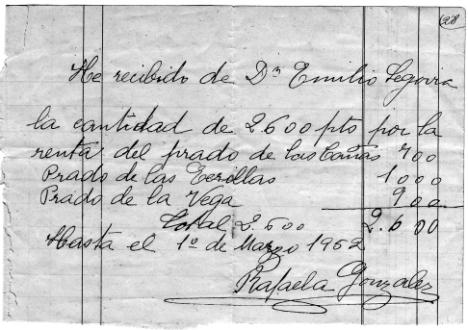 28
He recibido de Dn Emilio Segovia
la cantidad de 2.600 pts por la
renta del prado de las Cañas 700
Prado de las Terillas 1000
Prado de la Vega 900
Total 2.600 2.600
Hasta el 1º de Marzo 1962
Rafaela Gonzalez